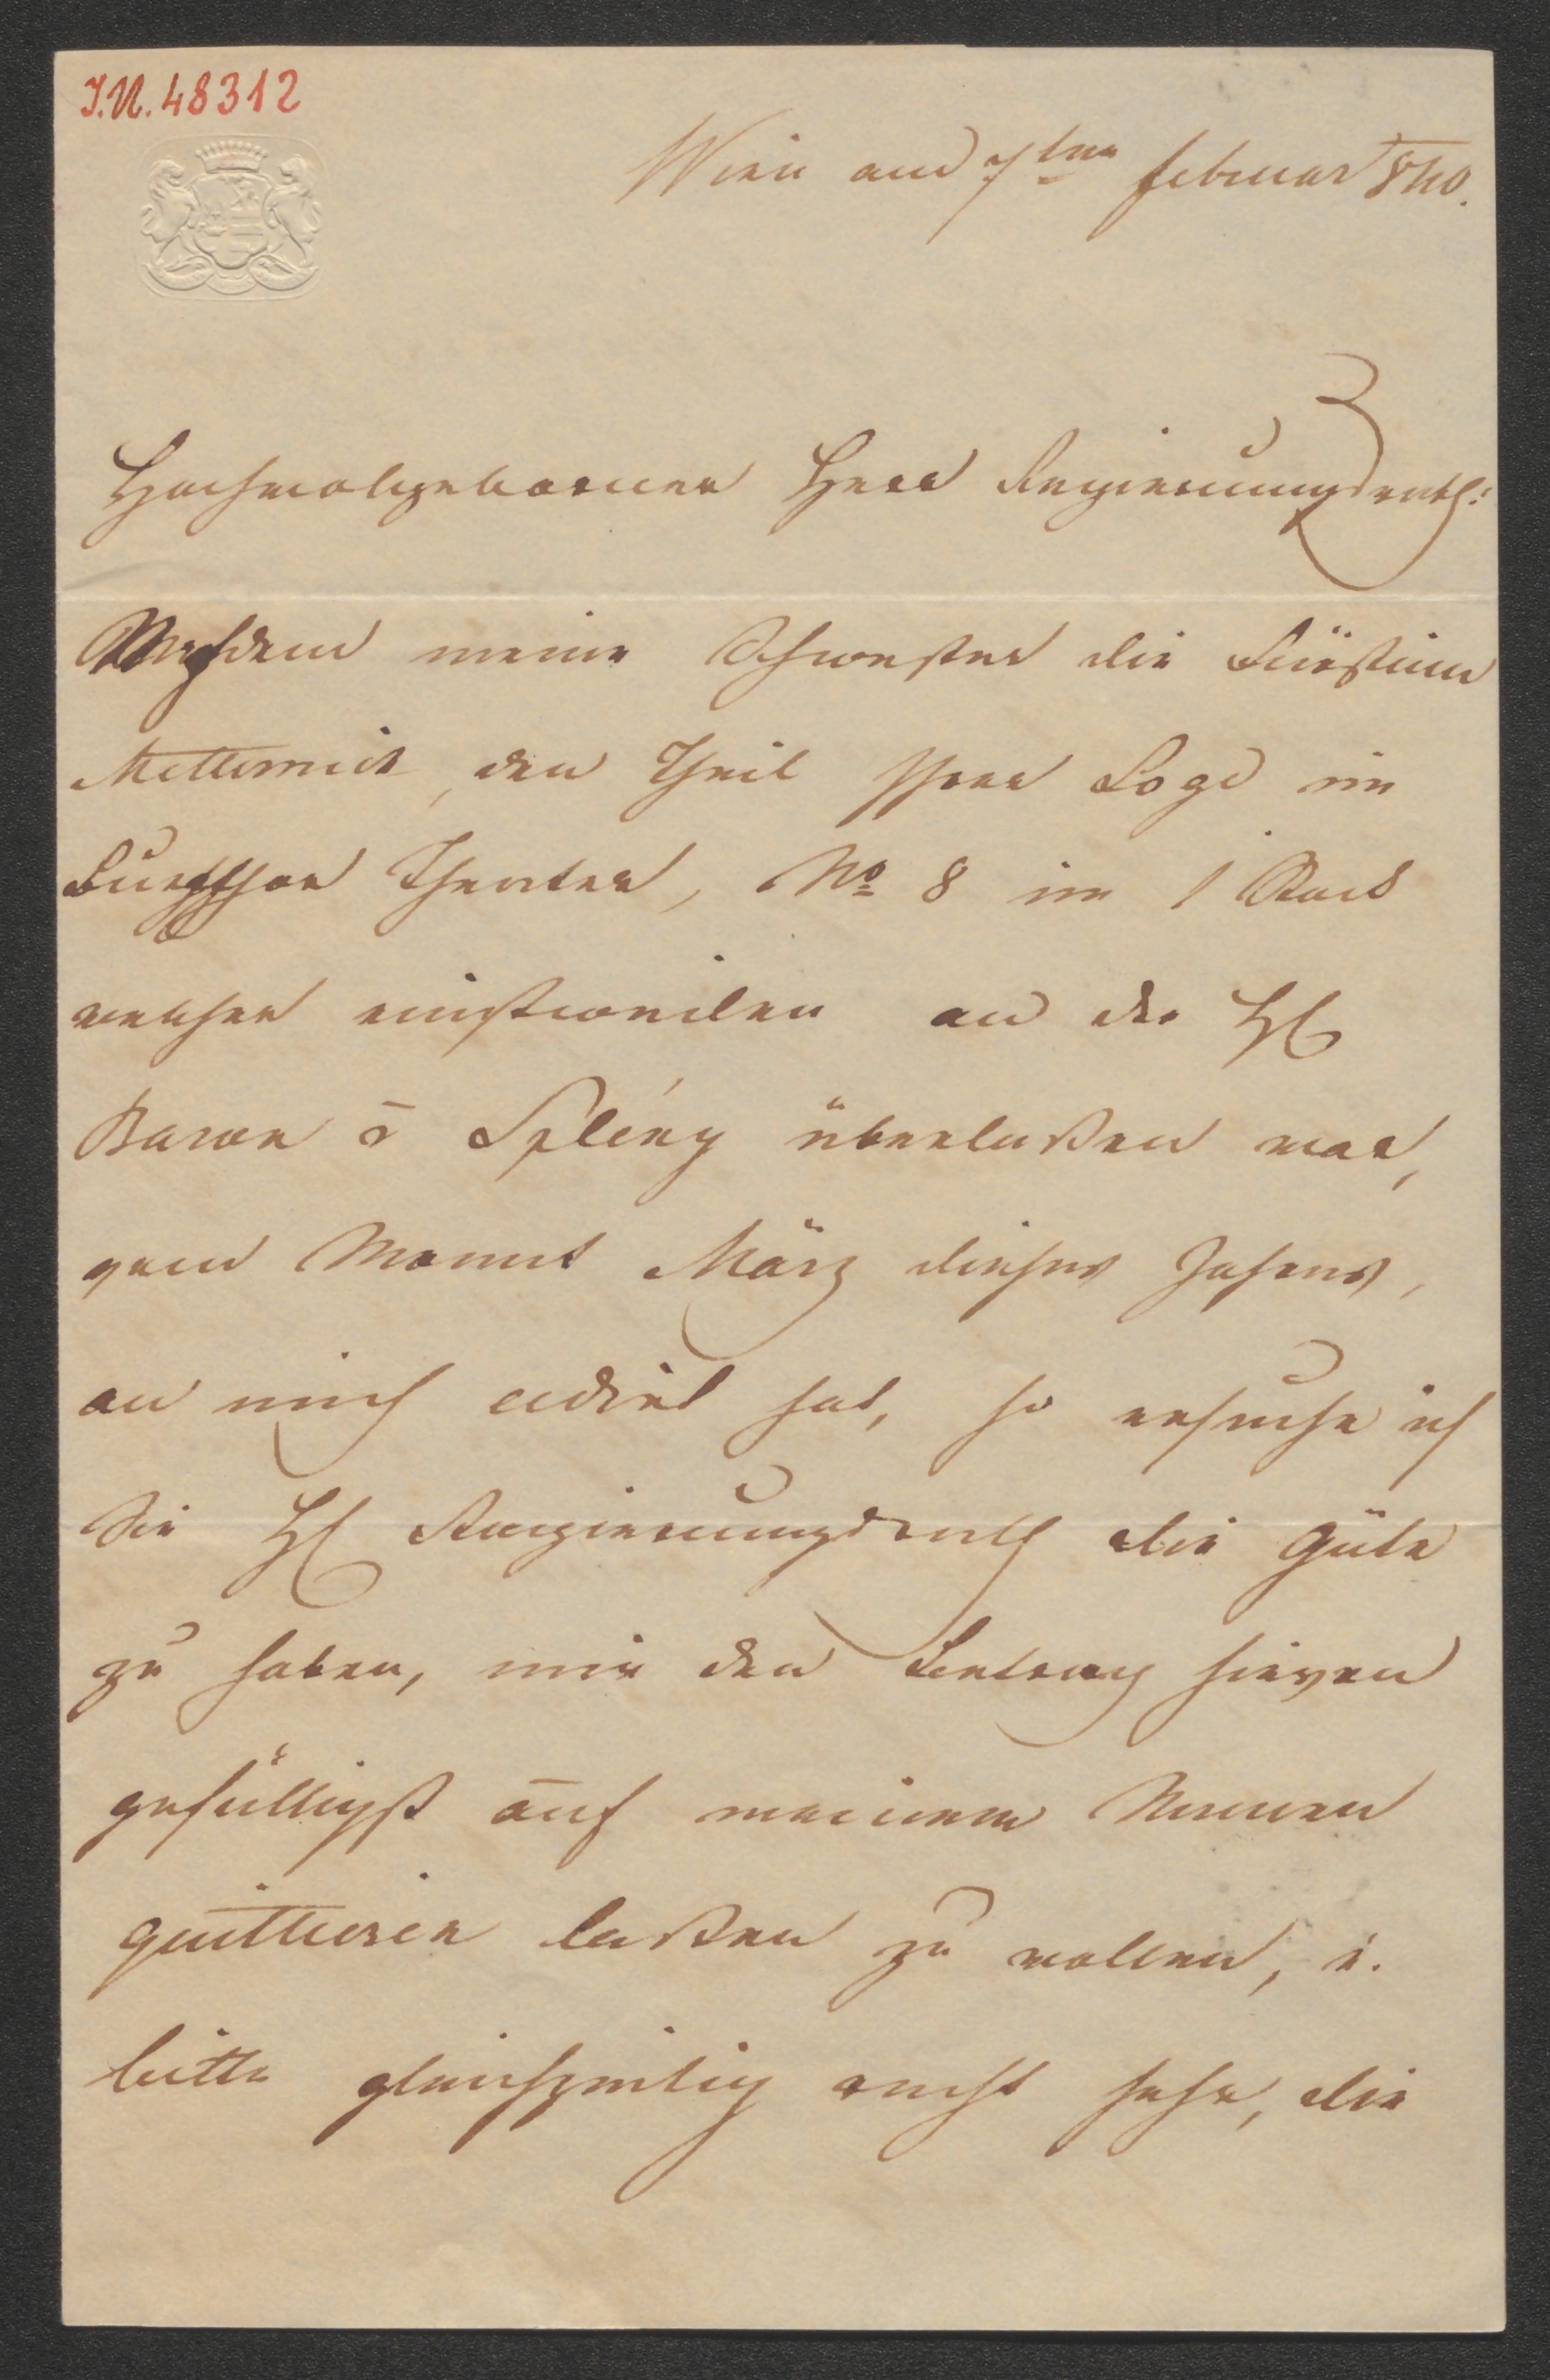 I.N. 48312
Wien am 7ten februar 840.
Hochwohlgeborner Herr Regierungsrath!
Nachdem meine Schwester die Fürstinn
Metternich, den Theil Ihrer Loge im
Burgthor Theater, No 8 im 1 Stock
welcher einstweilen an der H
Baron v Splény überlaßen war,
vom Monat März dieses Jahres,
an mich cedirt hat, so ersuche ich
Sie H Regierungsrath die Güte
zu haben, mir den Betrag hievon
gefälligst auf meinem Namen
quittieren laßen zu wollen, u.
bitte gleichzeitig recht sehr, die